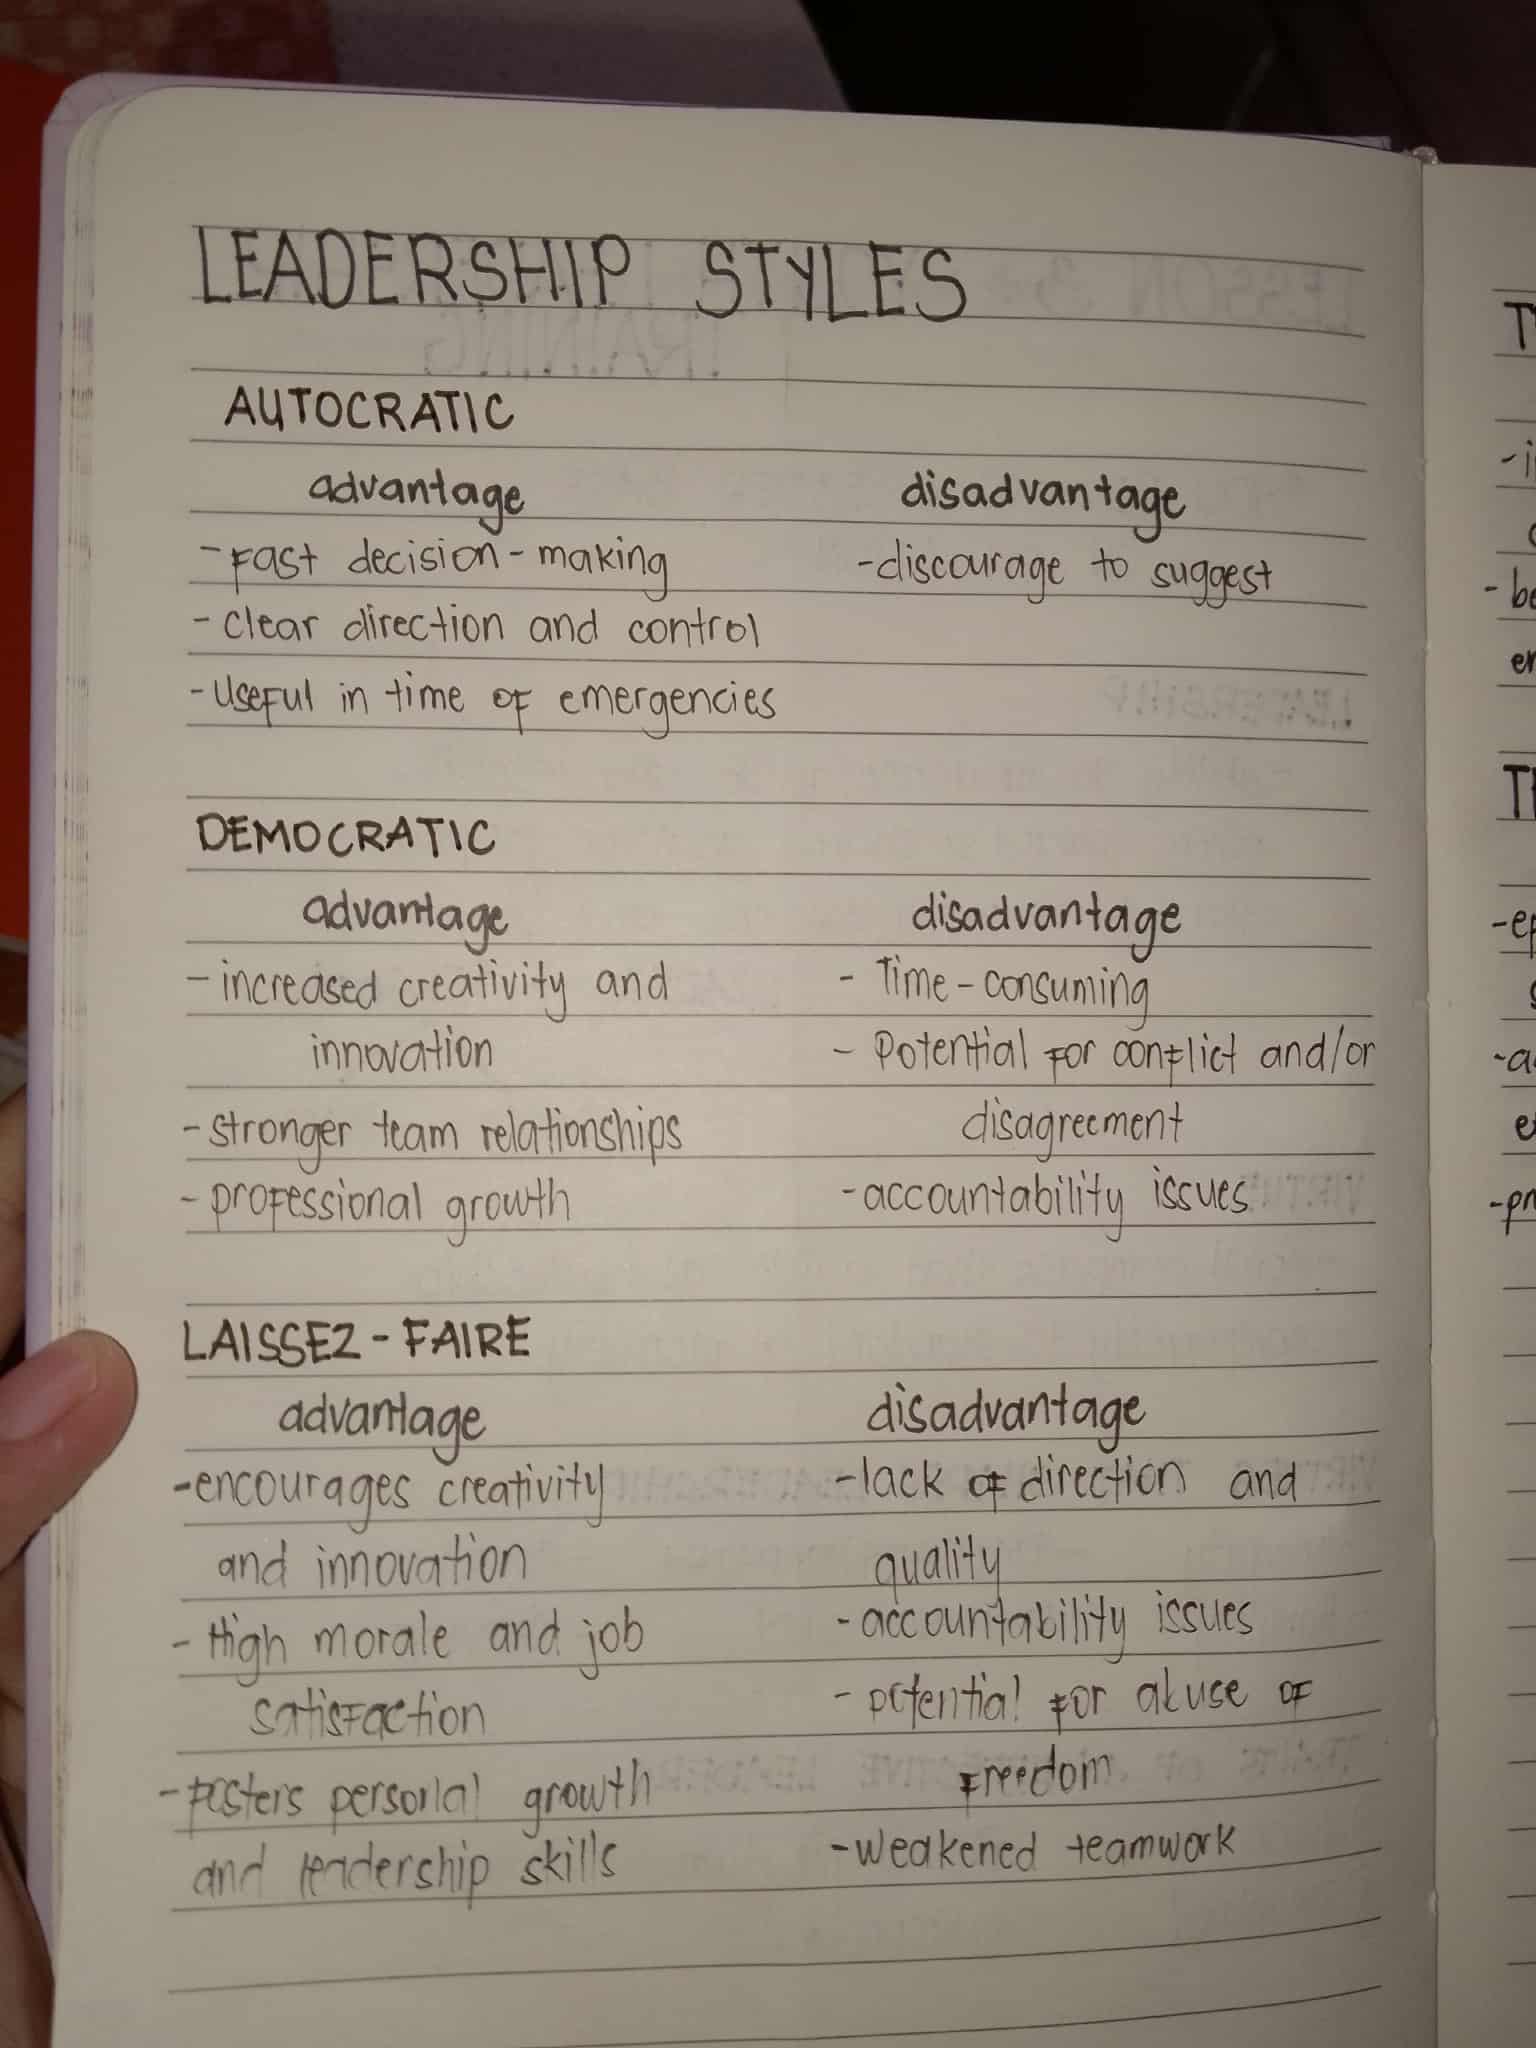 LEADERSHIP STYLES
AUTOCRATIC
advantage disadvantage
- Fast decision-making -discourage to suggest
- clear direction and control
- Useful in time of emergencies
DEMOCRATIC
advantage disadvantage
- increased creativity and - Time-consuming
innovation - Potential for conflict and/or
- stronger team relationships disagreement
- professional growth -accountability issues
LAISSEZ-FAIRE
advantage disadvantage
-encourages creativity -lack of direction and
and innovation quality
- High morale and job -accountability issues
satisfaction - potential for abuse of
- Fosters personal growth Freedom
and leadership skills -weakened teamwork